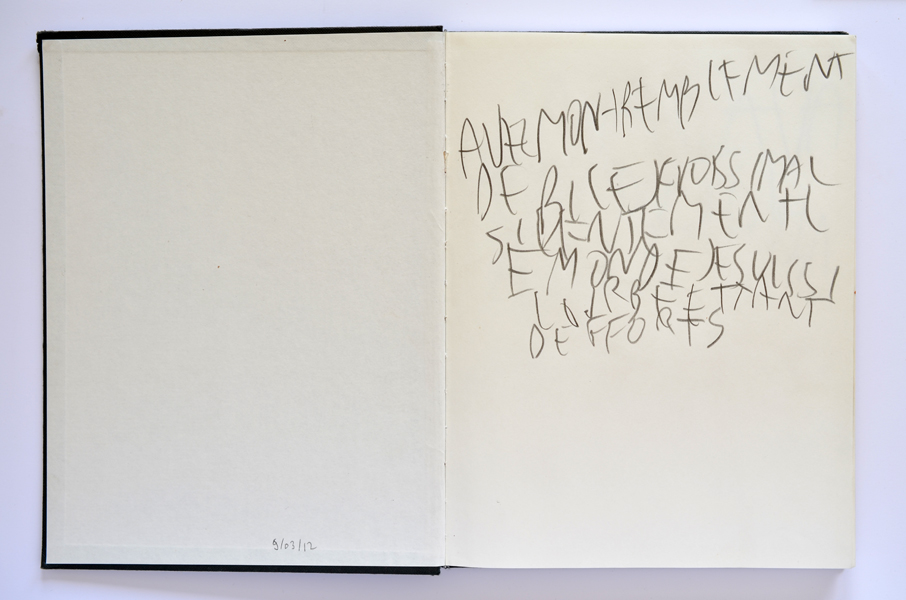 9/03/12
AVEC MON TREMBLEMENT
DEBILE JE VOIS SI MAL
SI LENTEMENT L
E MONDE JE SUIS SI
LOURDE ET TANT
DEFFORTS